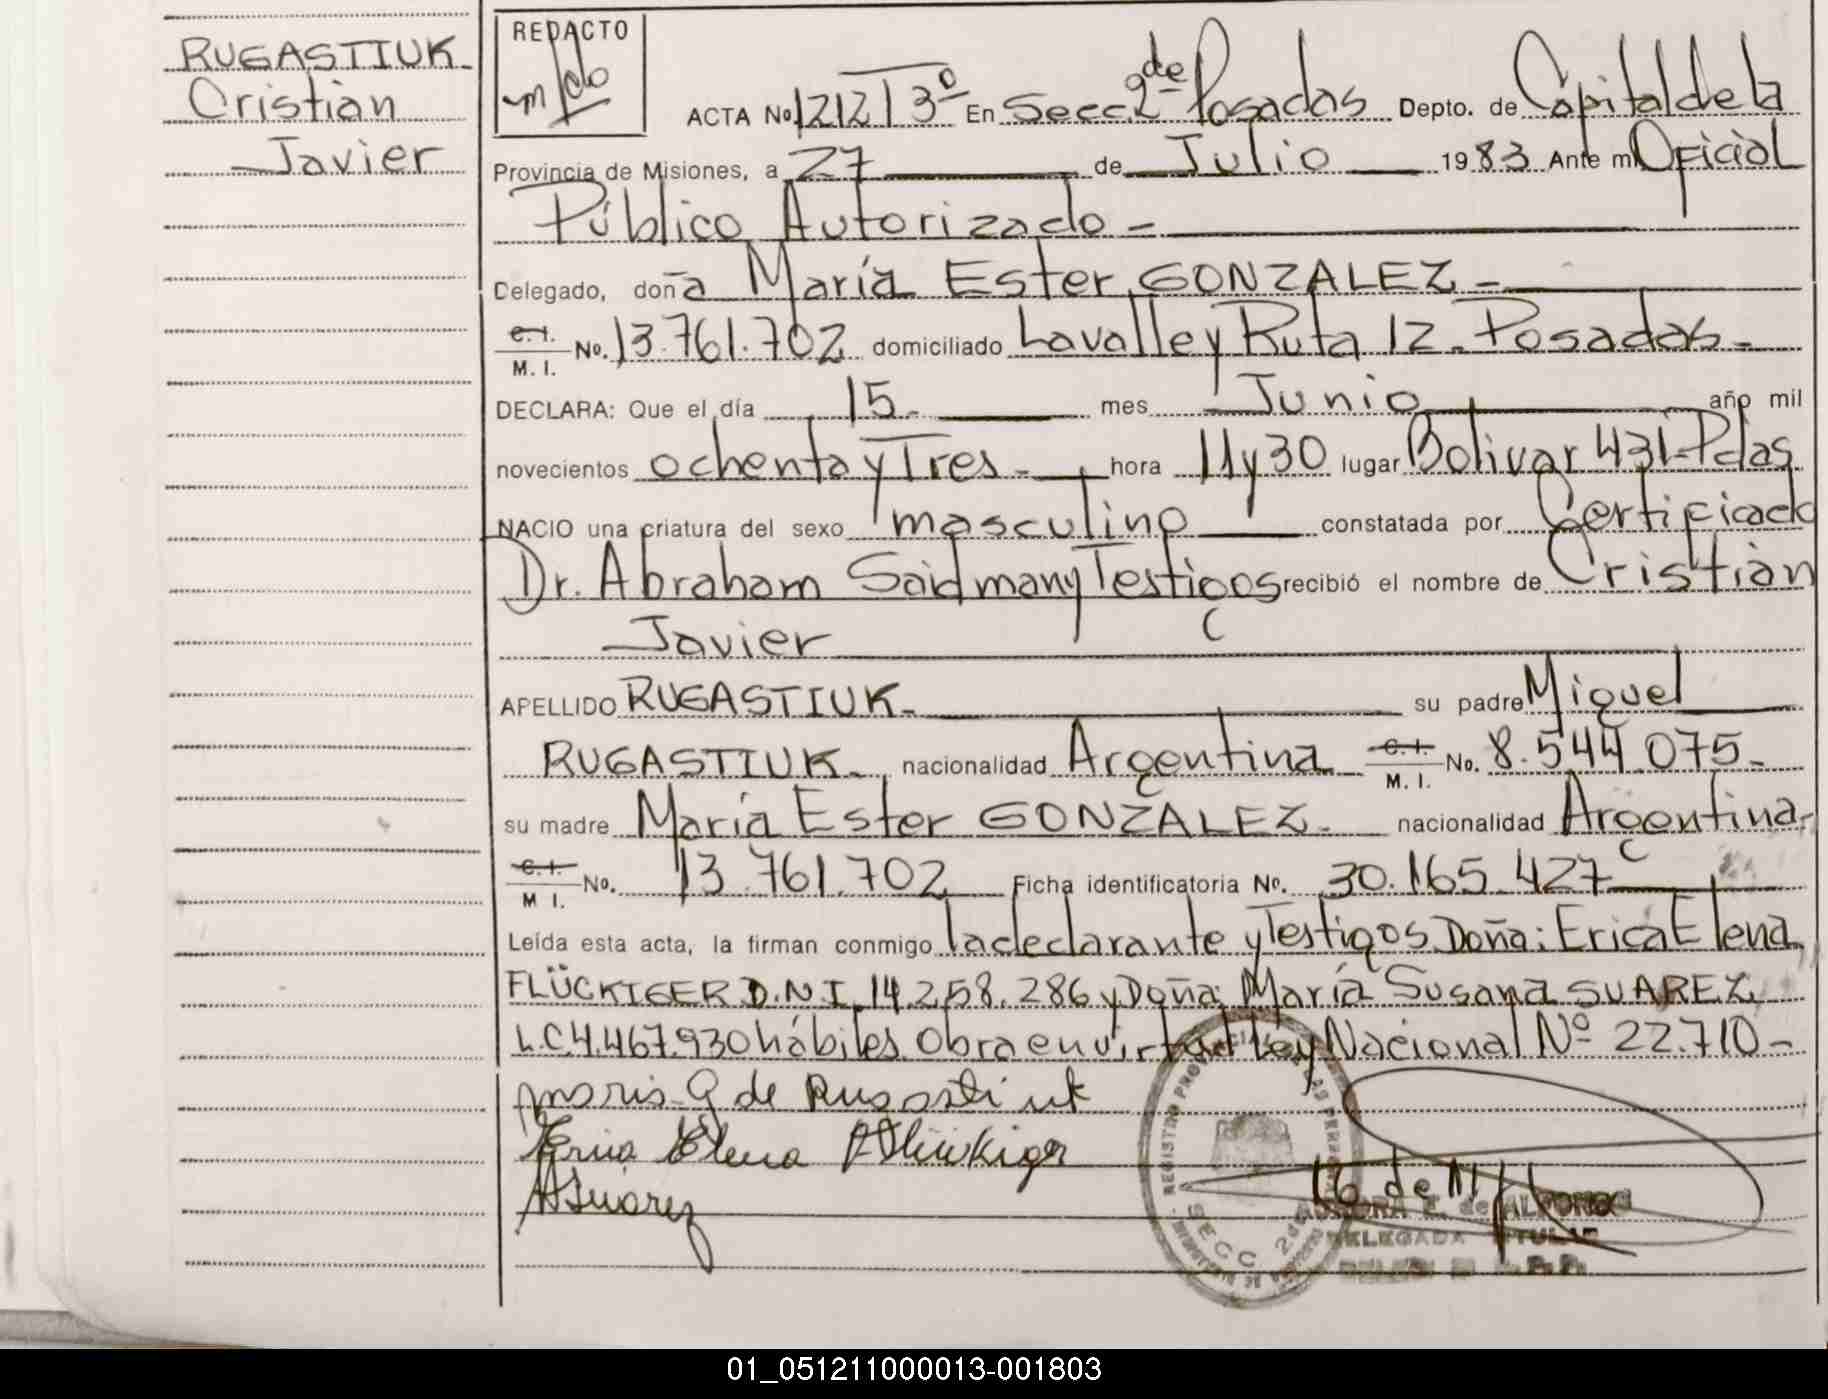 RUGASTIUK
Cristian
Javier
REDACTO
ACTA No. 1212 T 3º En Secc. 2da Posadas Depto. de Capital de la
Provincia de Misiones, a 27 de Julio 1983 Ante mi Oficial
Público Autorizado -
Delegado, doña María Ester GONZALEZ -
C.I. M. I. No. 13.761.702 domiciliado Lavalle y Ruta 12 - Posadas -
DECLARA: Que el día 15 - mes Junio año mil
novecientos ochenta y Tres - hora 11 y 30 lugar Bolivar 431 - Pdas
NACIO una criatura del sexo masculino constatada por Certificado
Dr. Abraham Saidman y Testigos recibió el nombre de Cristian
Javier
APELLIDO RUGASTIUK - su padre Miguel
RUGASTIUK - nacionalidad Argentina C.I. M. I. No. 8.544.075 -
su madre María Ester GONZALEZ - nacionalidad Argentina -
C.I. M I. No. 13.761.702 Ficha identificatoria No. 30.165.427
Leída esta acta, la firman conmigo la declarante y Testigos Doña: Erica Elena
FLÜCKIGER D.N.I. 14.258.286 y Doña: María Susana SUAREZ
L.C. 4.467.930 hábiles. Obra en virtud Ley Nacional Nº 22.710 -
Maria G de Rugastiuk
Erica Elena Flückiger
Suarez
REGISTRO PROVINCIAL DE LAS PERSONAS
SECC. 2da
E. de ALFONSO
DELEGADA TITULAR
01_051211000013-001803